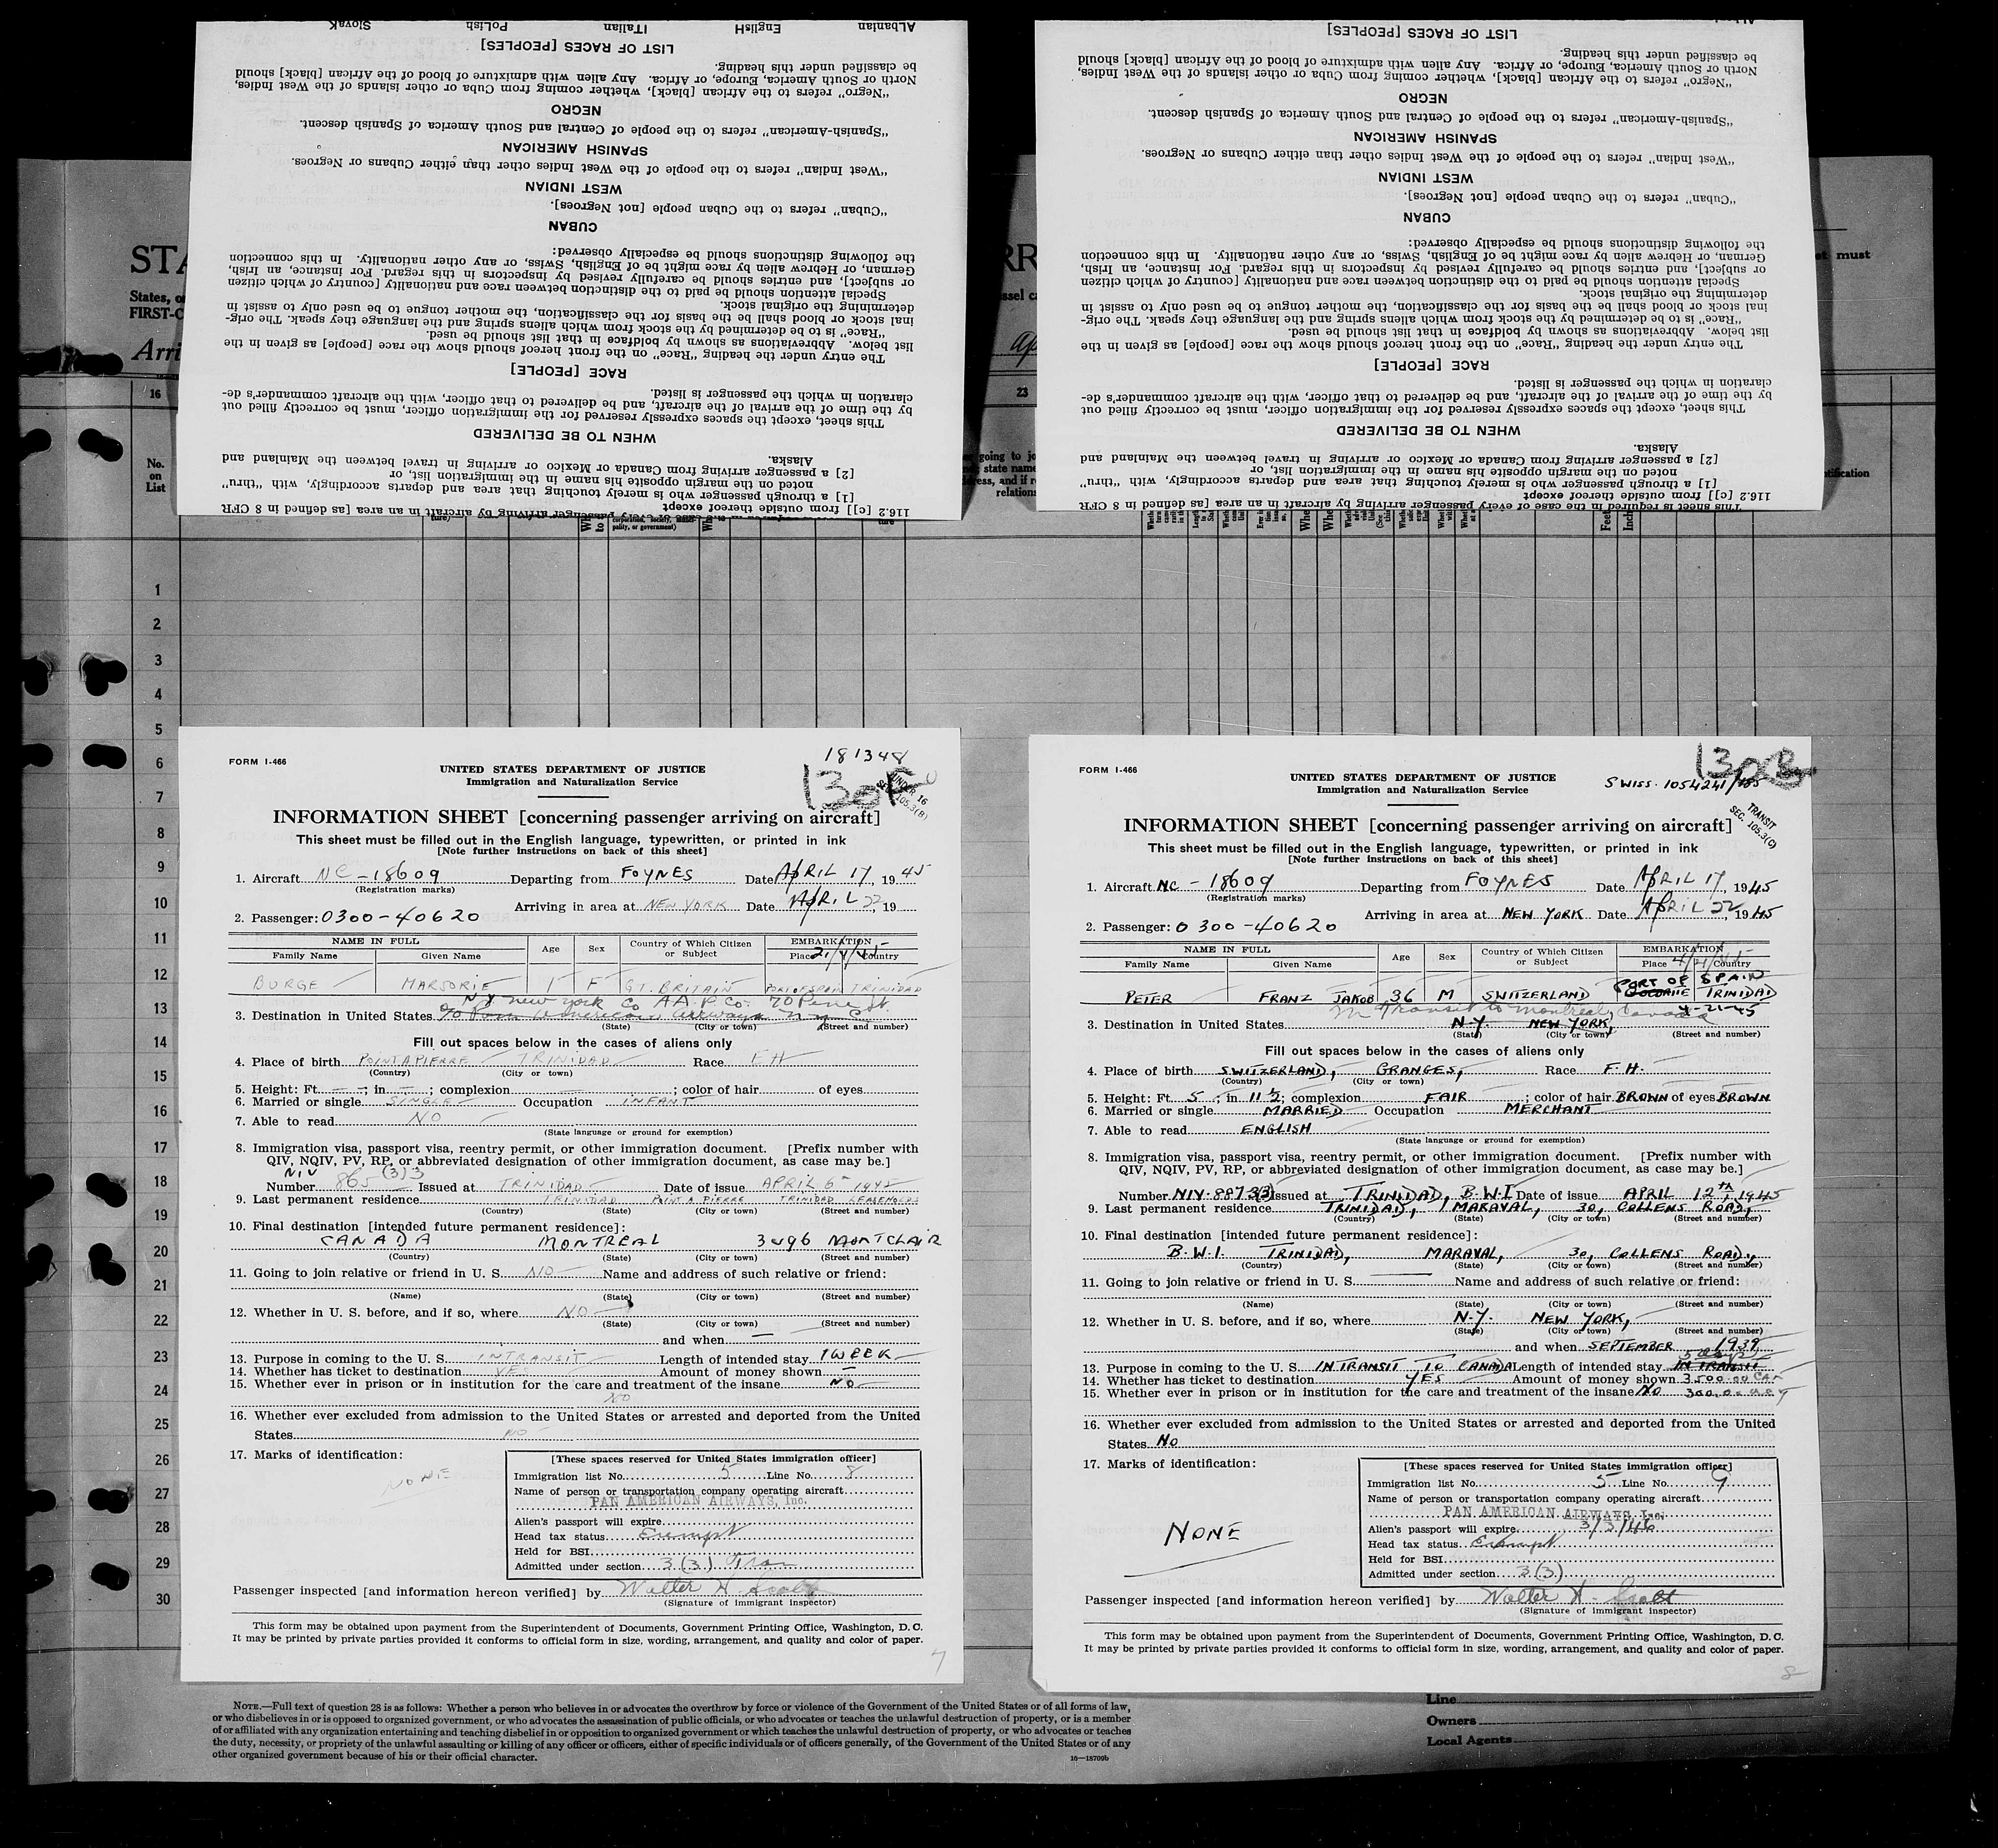 ALbanian EnglisH ITalian PoLisH SlovaK
LIST OF RACES [PEOPLES]
be classified under this heading.
North or South America, Europe, or Africa. Any alien with admixture of blood of the African [black] should
"Negro" refers to the African [black], whether coming from Cuba or other islands of the West Indies,
NEGRO
"Spanish-American" refers to the people of Central and South America of Spanish descent.
SPANISH AMERICAN
"West Indian" refers to the people of the West Indies other than either Cubans or Negroes.
WEST INDIAN
"Cuban" refers to the Cuban people [not Negroes].
CUBAN
the following distinctions should be especially observed:
German, or Hebrew alien by race might be of English, Swiss, or any other nationality. In this connection
or subject], and entries should be carefully revised by inspectors in this regard. For instance, an Irish,
Special attention should be paid to the distinction between race and nationality [country of which citizen
determining the original stock.
inal stock or blood shall be the basis for the classification, the mother tongue to be used only to assist in
"Race" is to be determined by the stock from which aliens spring and the language they speak. The orig-
list below. Abbreviations as shown by boldface in that list should be used.
The entry under the heading "Race" on the front hereof should show the race [people] as given in the
RACE [PEOPLE]
claration in which the passenger is listed.
by the time of the arrival of the aircraft, and be delivered to that officer, with the aircraft commander's de-
This sheet, except the spaces expressly reserved for the immigration officer, must be correctly filled out
WHEN TO BE DELIVERED
Alaska.
[2] a passenger arriving from Canada or Mexico or arriving in travel between the Mainland and
noted on the margin opposite his name in the immigration list, or
[1] a through passenger who is merely touching that area and departs accordingly, with "thru"
116.2 [c]] from outside thereof except
LIST OF RACES [PEOPLES]
be classified under this heading.
North or South America, Europe, or Africa. Any alien with admixture of blood of the African [black] should
"Negro" refers to the African [black], whether coming from Cuba or other islands of the West Indies,
NEGRO
"Spanish-American" refers to the people of Central and South America of Spanish descent.
SPANISH AMERICAN
"West Indian" refers to the people of the West Indies other than either Cubans or Negroes.
WEST INDIAN
"Cuban" refers to the Cuban people [not Negroes].
CUBAN
the following distinctions should be especially observed:
German, or Hebrew alien by race might be of English, Swiss, or any other nationality. In this connection
or subject], and entries should be carefully revised by inspectors in this regard. For instance, an Irish,
Special attention should be paid to the distinction between race and nationality [country of which citizen
determining the original stock.
inal stock or blood shall be the basis for the classification, the mother tongue to be used only to assist in
"Race" is to be determined by the stock from which aliens spring and the language they speak. The orig-
list below. Abbreviations as shown by boldface in that list should be used.
The entry under the heading "Race" on the front hereof should show the race [people] as given in the
RACE [PEOPLE]
claration in which the passenger is listed.
by the time of the arrival of the aircraft, and be delivered to that officer, with the aircraft commander's de-
This sheet, except the spaces expressly reserved for the immigration officer, must be correctly filled out
WHEN TO BE DELIVERED
Alaska.
[2] a passenger arriving from Canada or Mexico or arriving in travel between the Mainland and
noted on the margin opposite his name in the immigration list, or
[1] a through passenger who is merely touching that area and departs accordingly, with "thru"
116.2 [c]] from outside thereof except
This sheet is required in the case of every passenger arriving by aircraft in an area [as defined in 8 CFR
must
States,
FIRST-C
Arri
16
23
No.
on
List
1
2
3
4
5
6
7
8
9
10
11
12
13
14
15
16
17
18
19
20
21
22
23
24
25
26
27
28
29
30
181348
FORM I-466
UNITED STATES DEPARTMENT OF JUSTICE
Immigration and Naturalization Service
UNDER 16
SEC. 105.3(B)
INFORMATION SHEET [concerning passenger arriving on aircraft]
This sheet must be filled out in the English language, typewritten, or printed in ink
[Note further instructions on back of this sheet]
1. Aircraft NC-18609 Departing from FOYNES Date APRIL 17, 1945
(Registration marks)
Arriving in area at NEW YORK Date APRIL 22, 19
2. Passenger: 0300-40620
NAME IN FULL Age Sex Country of Which Citizen or Subject EMBARKATION
Family Name Given Name Place Country
BURGE MARJORIE 1 F GT. BRITAIN PORT OF SPAIN TRINIDAD
N.Y. New York Co AA.P.Co. 70 Pine St.
3. Destination in United States c/o Pan American Airways N.Y.C.
(State) (City or town) (Street and number)
Fill out spaces below in the cases of aliens only
4. Place of birth POINT A PIERRE TRINIDAD Race EH
(Country) (City or town)
5. Height: Ft. — ; in. — ; complexion ; color of hair of eyes
6. Married or single SINGLE Occupation INFANT
7. Able to read NO
(State language or ground for exemption)
8. Immigration visa, passport visa, reentry permit, or other immigration document. [Prefix number with
QIV, NQIV, PV, RP, or abbreviated designation of other immigration document, as case may be.]
NIV
Number 865 (3)3 Issued at TRINIDAD Date of issue APRIL 6 1945
9. Last permanent residence TRINIDAD POINT A PIERRE TRINIDAD LEASEHOLDS
(Country) (State) (City or town) (Street and number)
10. Final destination [intended future permanent residence]:
CANADA MONTREAL 3496 MONTCLAIR
(Country) (State) (City or town) (Street and number)
11. Going to join relative or friend in U. S. NO Name and address of such relative or friend:
(Name) (State) (City or town) (Street and number)
12. Whether in U. S. before, and if so, where NO
(State) (City or town) (Street and number)
and when —
13. Purpose in coming to the U. S. INTRANSIT Length of intended stay 1 WEEK
14. Whether has ticket to destination YES Amount of money shown —
15. Whether ever in prison or in institution for the care and treatment of the insane NO
NO
16. Whether ever excluded from admission to the United States or arrested and deported from the United
States NO
17. Marks of identification:
NONE
[These spaces reserved for United States immigration officer]
Immigration list No. 5 Line No. 8
Name of person or transportation company operating aircraft
PAN AMERICAN AIRWAYS, Inc.
Alien's passport will expire
Head tax status Exempt
Held for BSI
Admitted under section 3(3) Tran
Passenger inspected [and information hereon verified] by Walter H. Scott
(Signature of immigrant inspector)
This form may be obtained upon payment from the Superintendent of Documents, Government Printing Office, Washington, D. C.
It may be printed by private parties provided it conforms to official form in size, wording, arrangement, and quality and color of paper.
7
FORM I-466
UNITED STATES DEPARTMENT OF JUSTICE
Immigration and Naturalization Service
TRANSIT
SEC. 105.3(C)
INFORMATION SHEET [concerning passenger arriving on aircraft]
This sheet must be filled out in the English language, typewritten, or printed in ink
[Note further instructions on back of this sheet]
1. Aircraft NC-18609 Departing from FOYNES Date APRIL 17, 1945
(Registration marks)
Arriving in area at NEW YORK Date APRIL 22 1945
2. Passenger: 0300-40620
NAME IN FULL Age Sex Country of Which Citizen or Subject EMBARKATION
Family Name Given Name Place Country
PETER FRANZ JAKOB 36 M SWITZERLAND PORT OF SPAIN TRINIDAD
4-21-45
In Transit to Montreal, Canada
3. Destination in United States N.Y. NEW YORK,
(State) (City or town) (Street and number)
Fill out spaces below in the cases of aliens only
4. Place of birth SWITZERLAND, GRANGES, Race F.H.
(Country) (City or town)
5. Height: Ft. 5 ; in. 11 ½; complexion FAIR ; color of hair BROWN of eyes BROWN
6. Married or single MARRIED Occupation MERCHANT
7. Able to read ENGLISH
(State language or ground for exemption)
8. Immigration visa, passport visa, reentry permit, or other immigration document. [Prefix number with
QIV, NQIV, PV, RP, or abbreviated designation of other immigration document, as case may be.]
Number NIV-887 3(3) Issued at TRINIDAD, B.W.I Date of issue APRIL 12th, 1945
9. Last permanent residence TRINIDAD, MARAVAL, 30, COLLENS ROAD,
(Country) (State) (City or town) (Street and number)
10. Final destination [intended future permanent residence]:
B.W.I. TRINIDAD, MARAVAL, 30, COLLENS ROAD,
(Country) (State) (City or town) (Street and number)
11. Going to join relative or friend in U. S. — Name and address of such relative or friend:
(Name) (State) (City or town) (Street and number)
12. Whether in U. S. before, and if so, where N.Y. NEW YORK,
(State) (City or town) (Street and number)
and when SEPTEMBER 1939
13. Purpose in coming to the U. S. IN TRANSIT TO CANADA Length of intended stay 5 days IN TRANSIT
14. Whether has ticket to destination YES Amount of money shown 3500.00 CAN
15. Whether ever in prison or in institution for the care and treatment of the insane NO 300.00
16. Whether ever excluded from admission to the United States or arrested and deported from the United
States No
17. Marks of identification:
NONE
[These spaces reserved for United States immigration officer]
Immigration list No. 5 Line No. 9
Name of person or transportation company operating aircraft
PAN AMERICAN AIRWAYS, Inc.
Alien's passport will expire 3/3/46
Head tax status Exempt
Held for BSI
Admitted under section 3(3)
Passenger inspected [and information hereon verified] by Walter H. Scott
(Signature of immigrant inspector)
This form may be obtained upon payment from the Superintendent of Documents, Government Printing Office, Washington, D. C.
It may be printed by private parties provided it conforms to official form in size, wording, arrangement, and quality and color of paper.
8
NOTE.—Full text of question 28 is as follows: Whether a person who believes in or advocates the overthrow by force or violence of the Government of the United States or of all forms of law,
or who disbelieves in or is opposed to organized government, or who advocates the assassination of public officials, or who advocates or teaches the unlawful destruction of property, or is a member
of or affiliated with any organization entertaining and teaching disbelief in or opposition to organized government or which teaches the unlawful destruction of property, or who advocates or teaches
the duty, necessity, or propriety of the unlawful assaulting or killing of any officer or officers, either of specific individuals or of officers generally, of the Government of the United States or of any
other organized government because of his or their official character.
16—18709b
Line
Owners
Local Agents